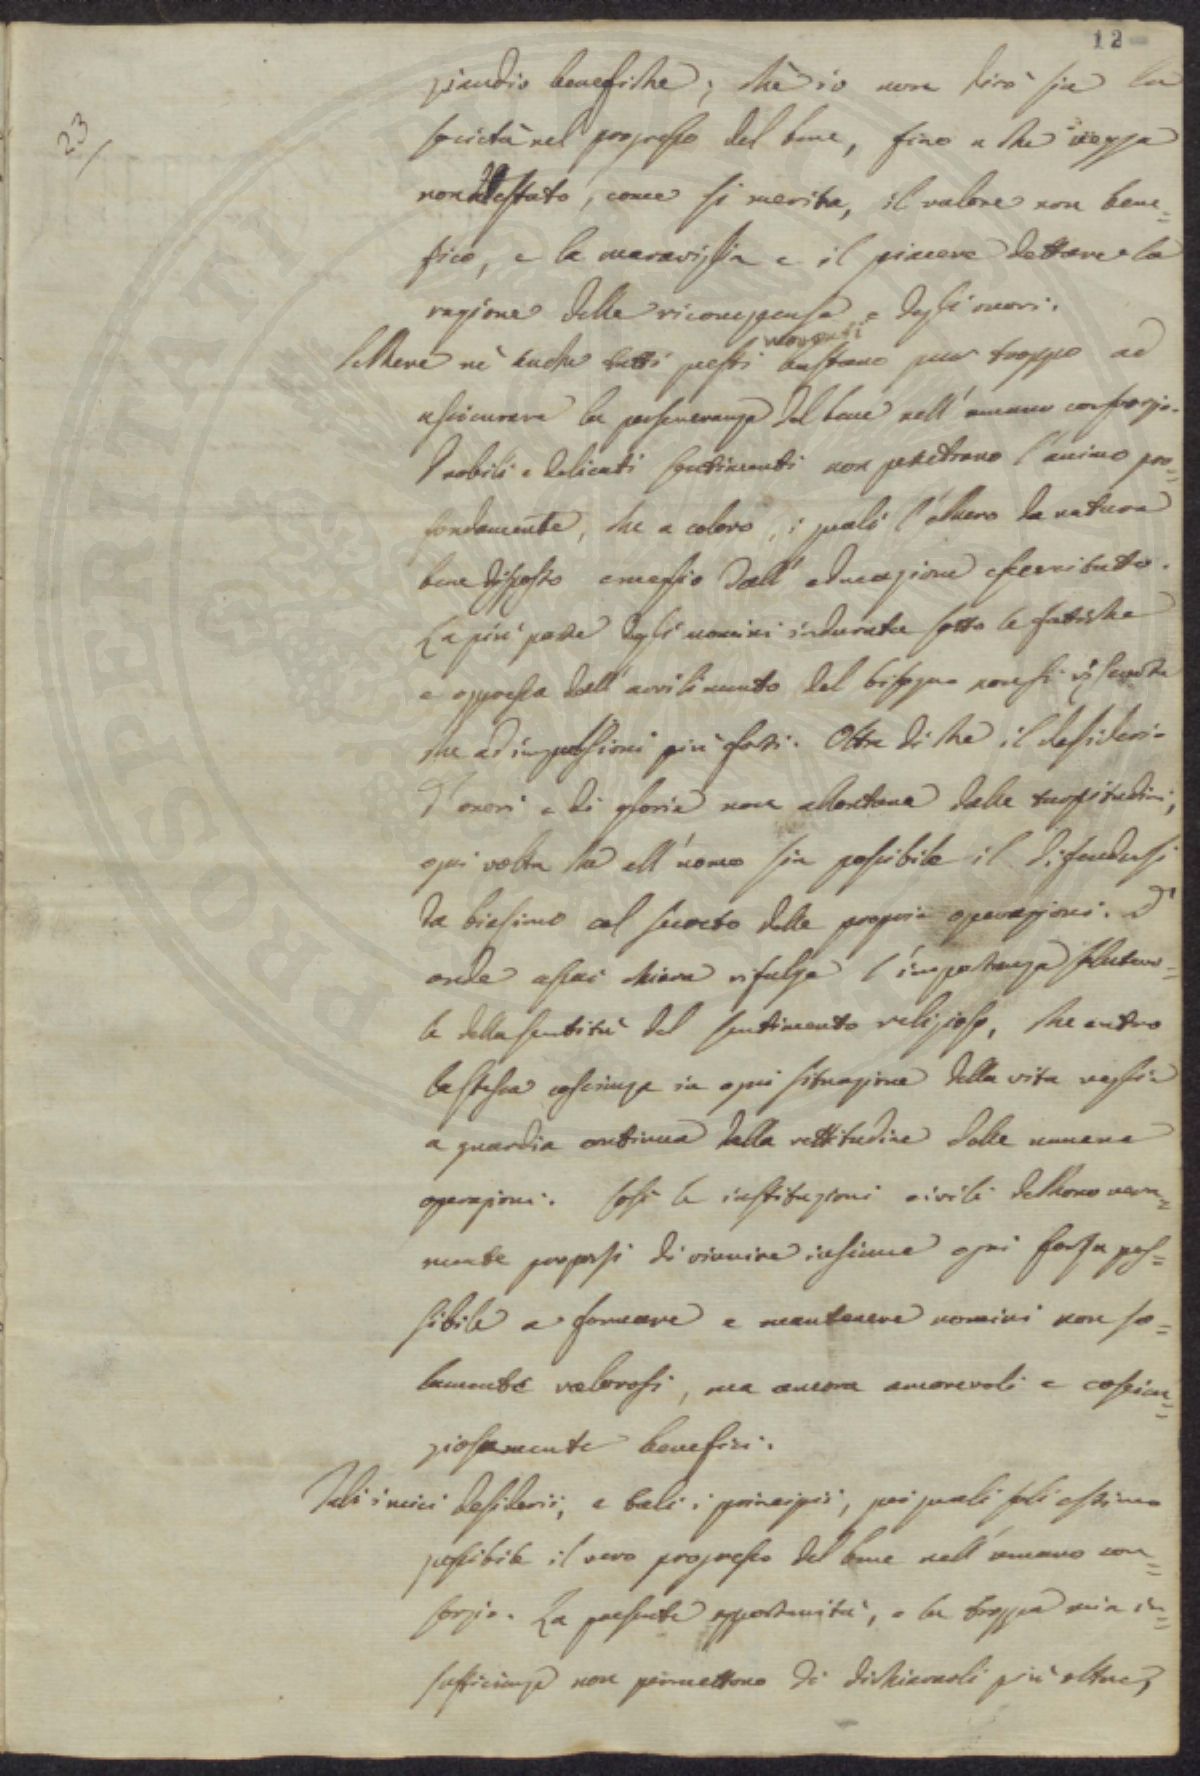 12
23
ziandio benefiche; chè io non dirò sia la
società nel progresso del bene, fino a che vegga
non detestato, come si merita, il valore non bene=
fico, e la maraviglia e il piacere dettare la
ragione delle ricompense e degli onori.
Sebbene nè anche tutti questi moventi bastano pur troppo ad
assicurare la perseveranza del bene nell'umano consorzio.
I nobili e delicati sentimenti non penetrano l'animo pro=
fondamente, che a coloro, i quali l'ebbero da natura
bene disposto e messo dall'educazione
La più parte degli uomini indurata sotto le fatiche
e oppressa dall'avvilimento del bisogno non si riscuote
che ad impressioni più forti. Oltre di che il desiderio
d'onori e di gloria non allontana dalle turpitudini,
ogni volta che all'uomo sia possibile il difendersi
da biasimo col secreto delle proprie operazioni. D'
onde assai chiara rifulge l'importanza salutevo=
le della santità del sentimento religioso, che entro
la stessa coscienza in ogni situazione della vita veglia
a guardia continua della rettitudine delle umane
operazioni. Così le instituzioni civili debbono vera=
mente proporsi di riunire insieme ogni forza pos=
sibile a formare e mantenere uomini non so=
lamente valorosi, ma ancora amorevoli e coscien=
ziosamente benefici.
Tali i miei desiderii, e tali i principii, pei quali soli estimo
possibile il vero progresso del bene nell'umano con=
sorzio. La presente opportunità, e la troppa mia in=
sufficienza non permettono di dichiararli più oltre;